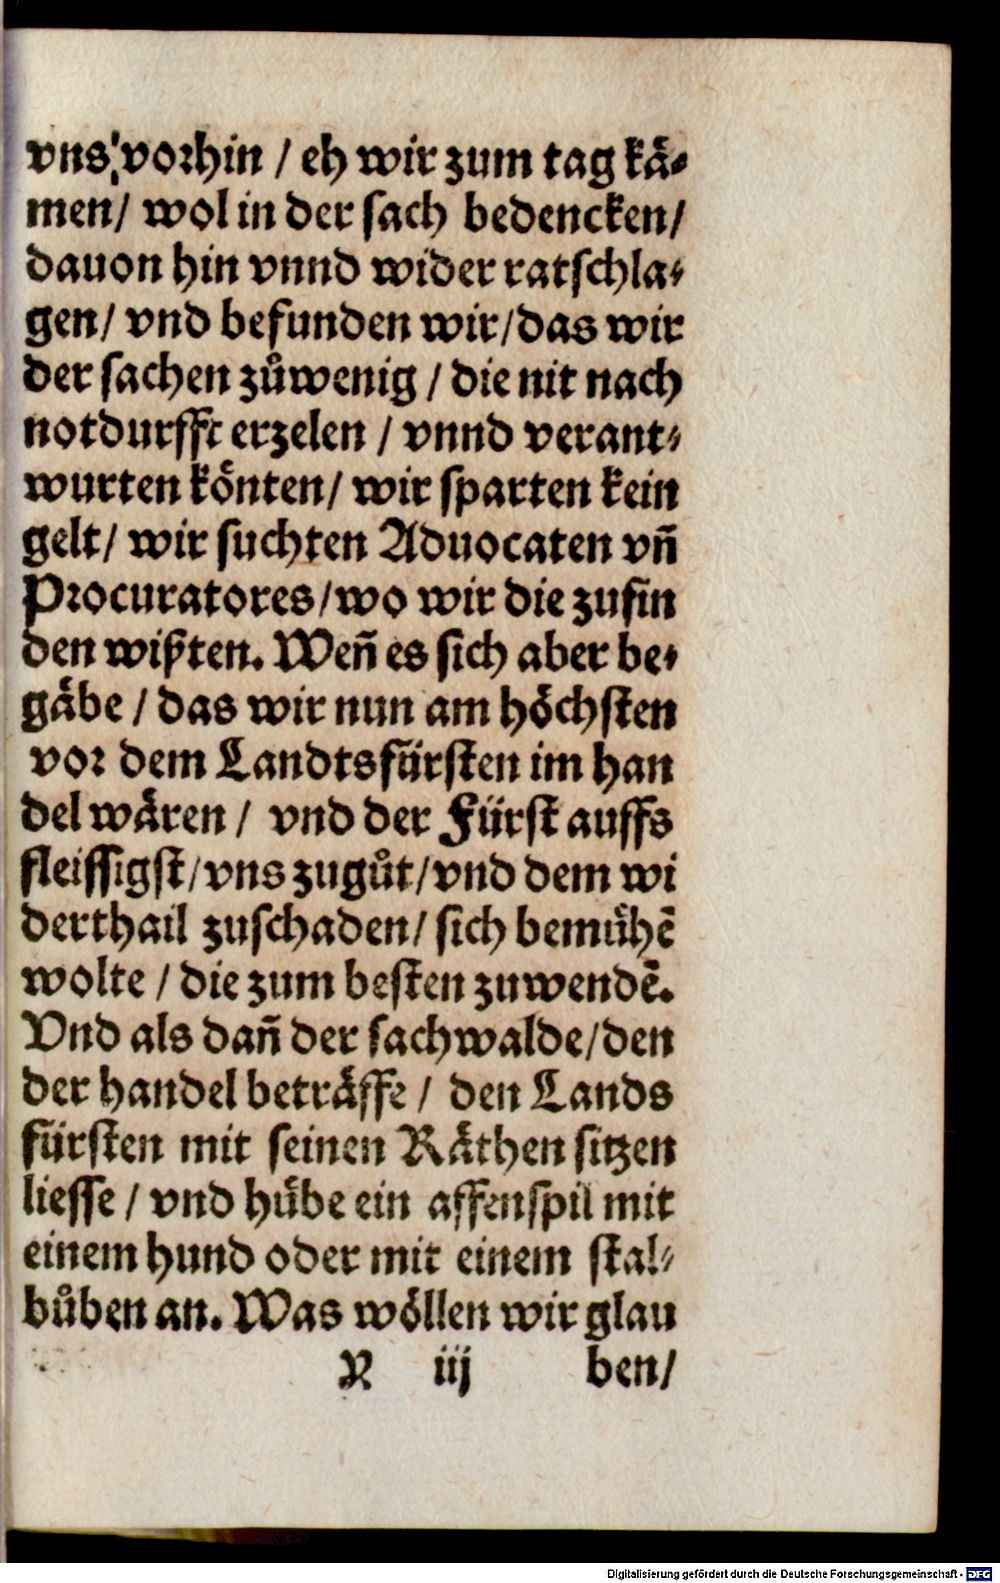 vns vorhin / eh wir zum tag kaͤ⸗
men / wol in der sach bedencken /
dauon hin vnnd wider ratschla⸗
gen / vnd befunden wir / das wir
der sachen zůwenig / die nit nach
notdurfft erzelen / vnnd verant⸗
wurten koͤnten / wir sparten kein
gelt / wir suchten Aduocaten vñ
Procuratores / wo wir die zufin
den wißten. Weñ es sich aber be⸗
gaͤbe / das wir nun am hoͤchsten
vor dem Landtsfürsten im han
del waͤren / vnd der Fürst auffs
fleissigst / vns zugůt / vnd dem wi
derthail zuschaden / sich bemuͤhẽ
wolte / die zum besten zuwendẽ.
Vnd als dañ der sachwalde / den
der handel betraͤffe / den Lands
fürsten mit seinen Raͤthen sitzen
liesse / vnd huͤbe ein affenspil mit
einem hund oder mit einem stal⸗
bůben an. Was woͤllen wir glau
R iij ben /
Digitalisierung gefördert durch die Deutsche Forschungsgemeinschaft - DFG